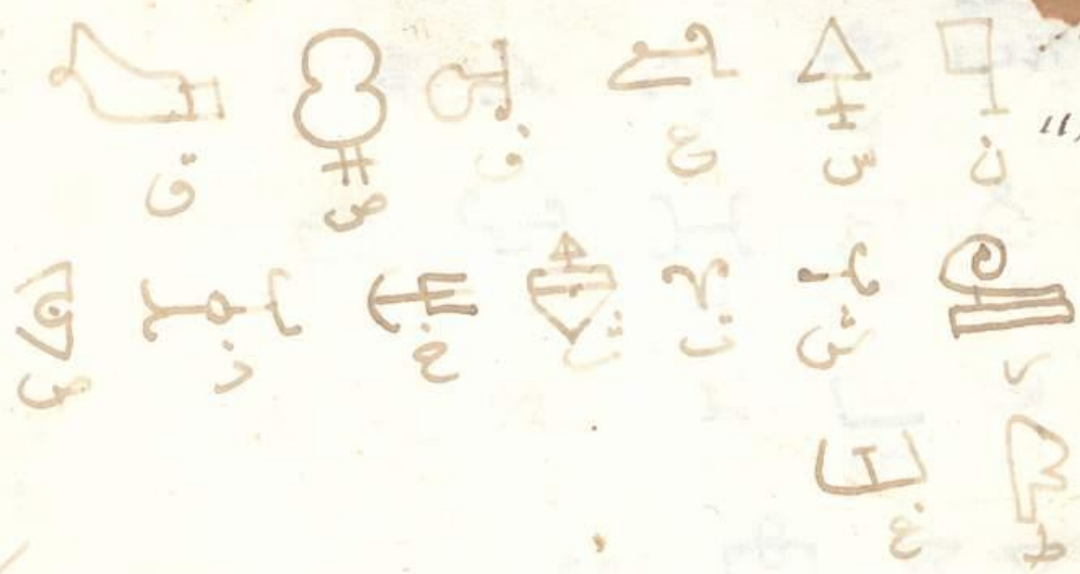 ن س ع ف ص ق
ر ش ت ث خ ذ ص
ط غ